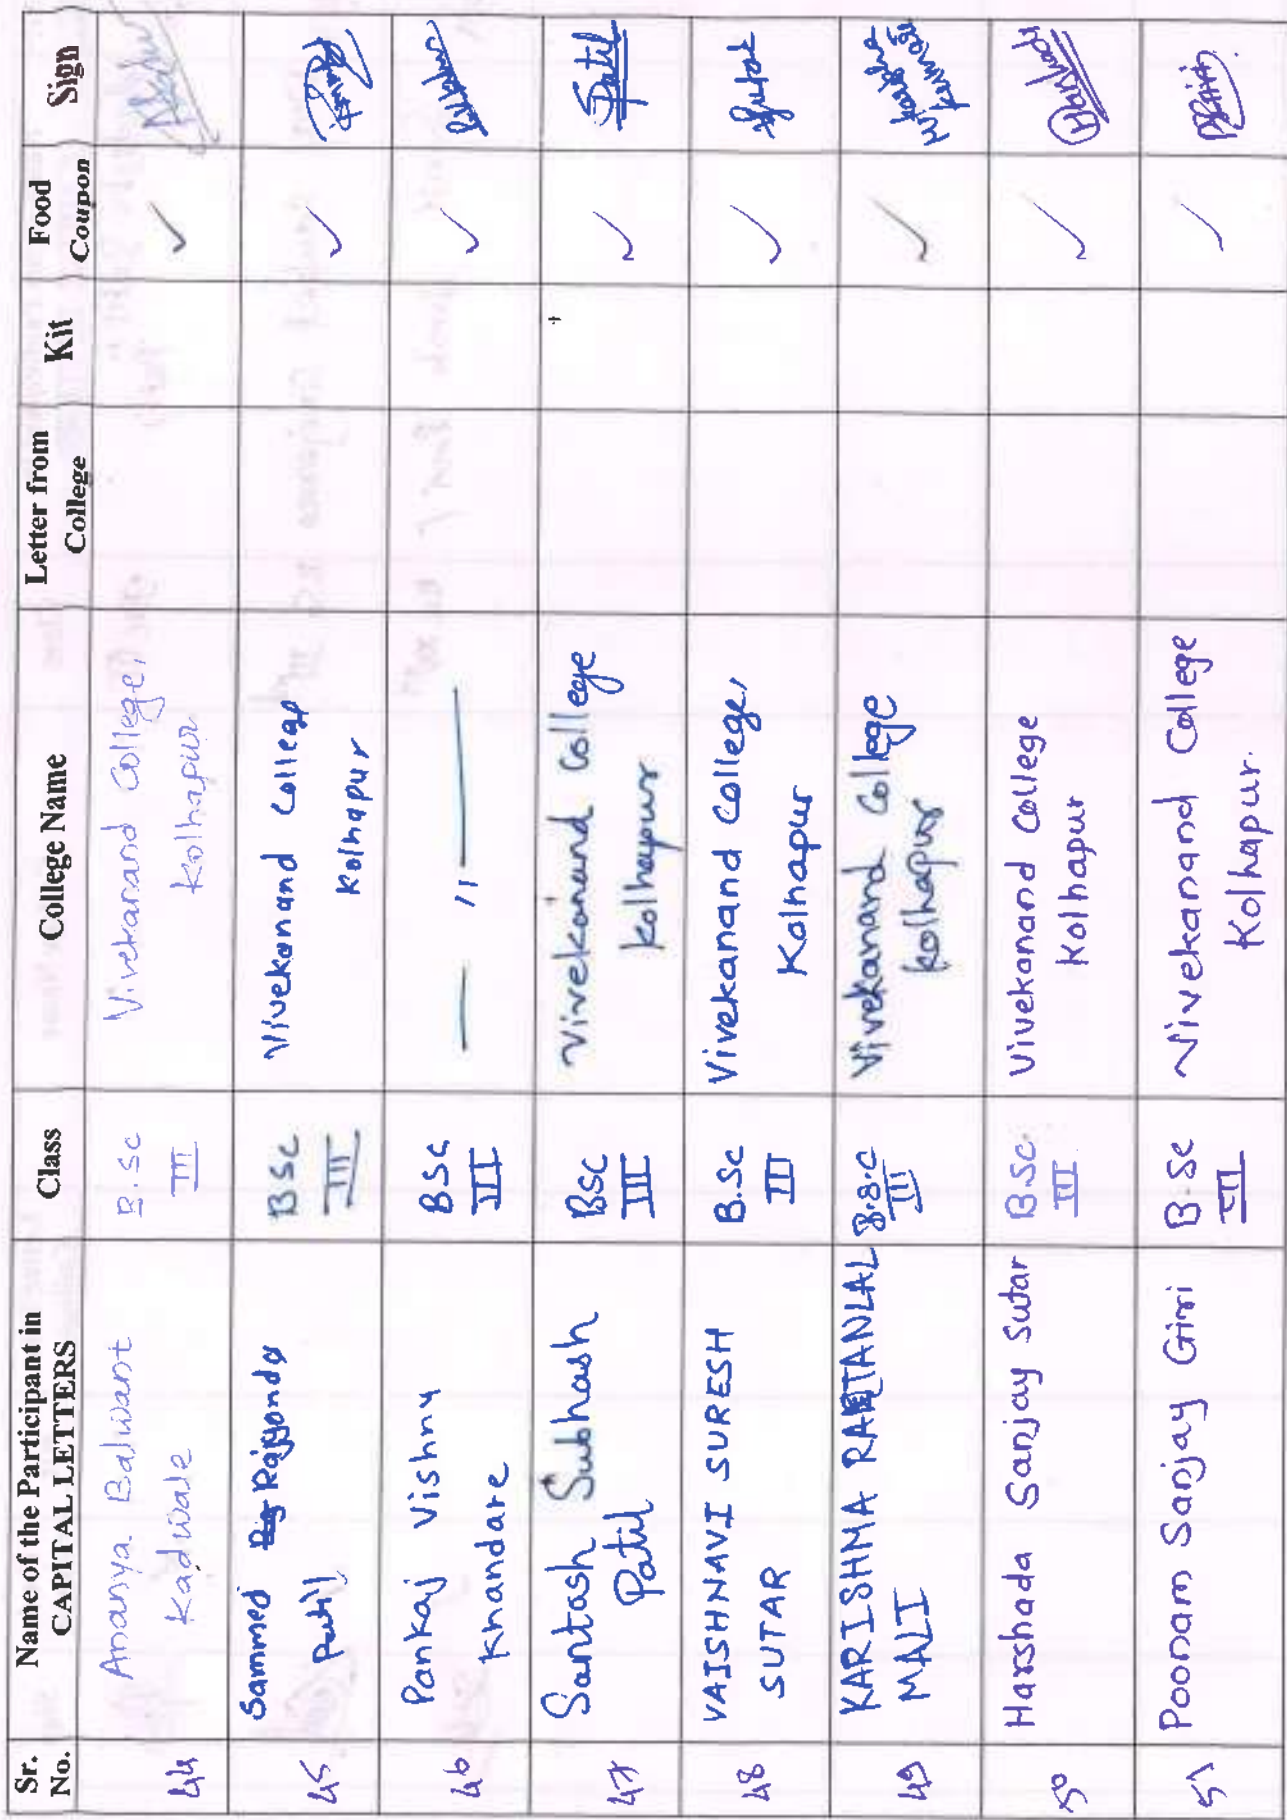 Sr. No. Name of the Participant in CAPITAL LETTERS Class College Name Letter from College Kit Food Coupon Sign
44 Ananya Balwant Kadwale B.Sc III Vivekanand College, Kolhapur ✓
45 Sammed Raygonda Patil BSc III Vivekanand College Kolhapur ✓
46 Pankaj Vishnu Khandare BSc III — 11 — ✓
47 Santosh Subhash Patil BSc III Vivekanand College Kolhapur ✓ Patil
48 VAISHNAVI SURESH SUTAR B.Sc III Vivekanand College, Kolhapur ✓
49 KARISHMA RATANLAL MALI B.s.c III Vivekanand College Kolhapur ✓
50 Harshada Sanjay Sutar B.Sc. III Vivekanand College Kolhapur ✓
51 Poonam Sanjay Giri B.Sc III Vivekanand College Kolhapur. ✓